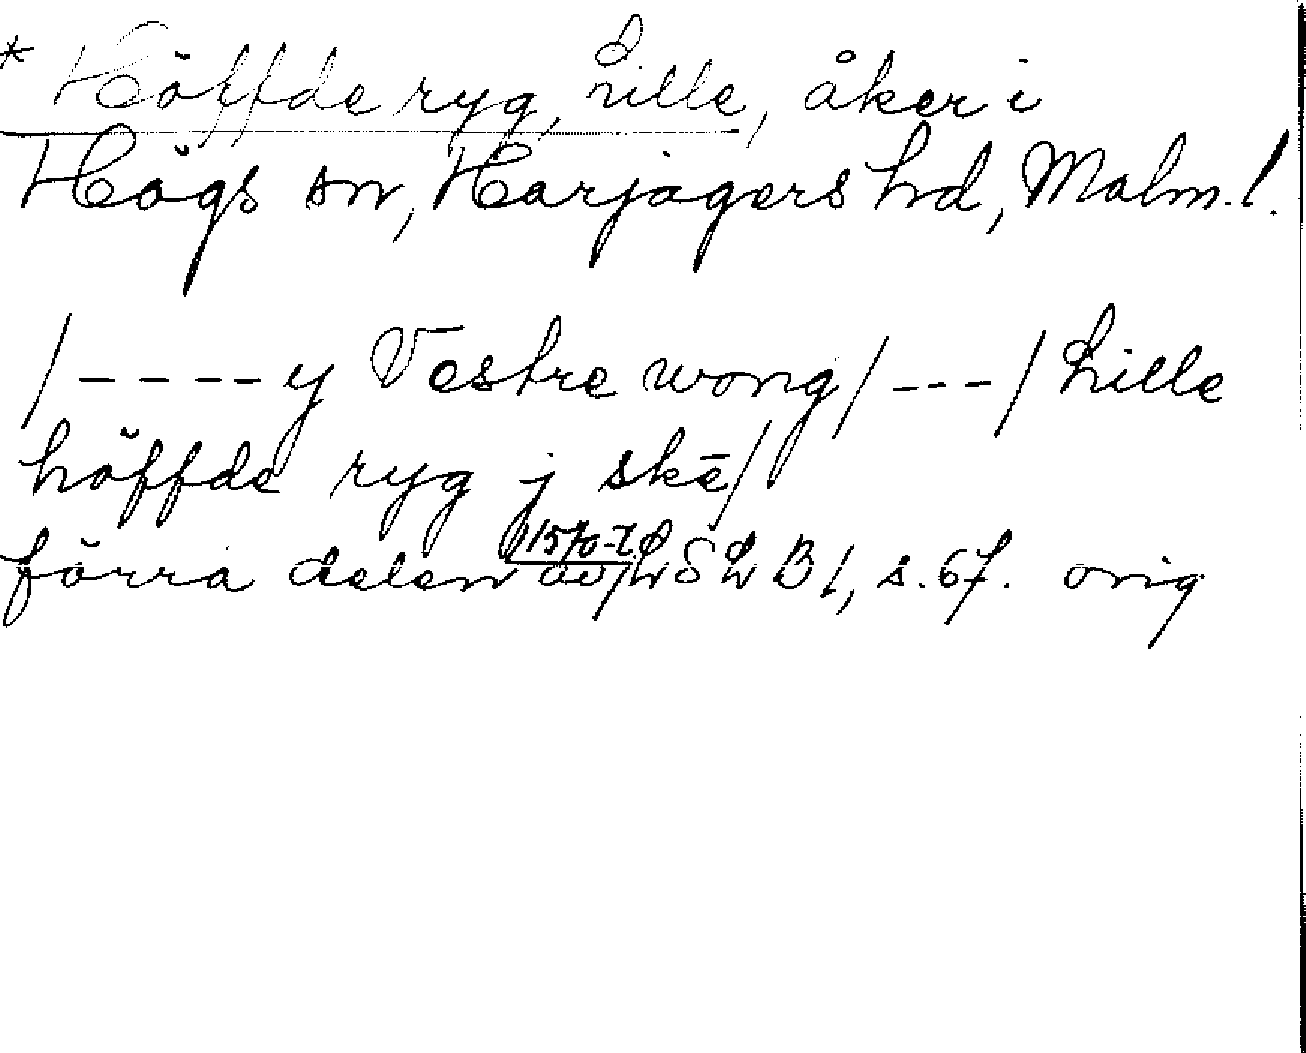 * Höffde ryg, Lille, åker i
Högs sn, Harjagers hd, Malm.l.
/----y Vestre wong/---/Lille
höffde ryg j skē/
1570-t.
förra delen av LSLB1, s.67. orig